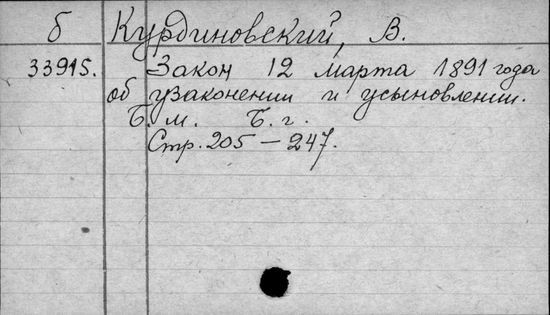 б Курдиновский, В.
33915. Закон 12 марта 1891 года
об узаконении и усыновлении.
Б. м. Б. г.
Стр. 205 — 247.